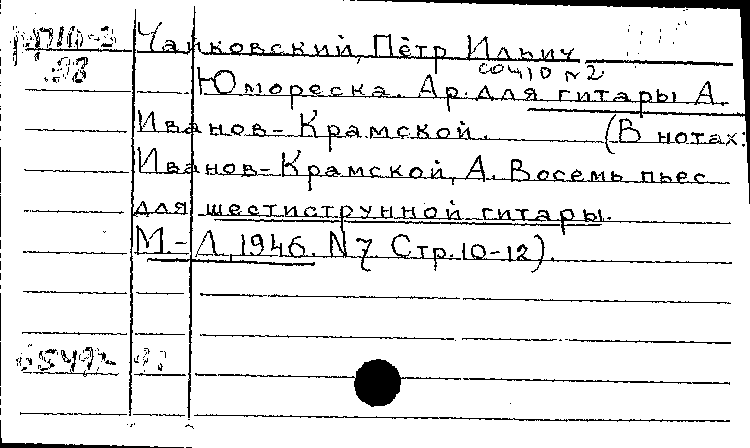 Чайковский, Пётр Ильич
соч10 №2
Юмореска. Ар. для гитары А.
Иванов-Крамской. (В нотах:
Иванов-Крамской, А. Восемь пьес
для шестиструнной гитары.
М.-Л, 1946. N 7 Стр. 10-12).